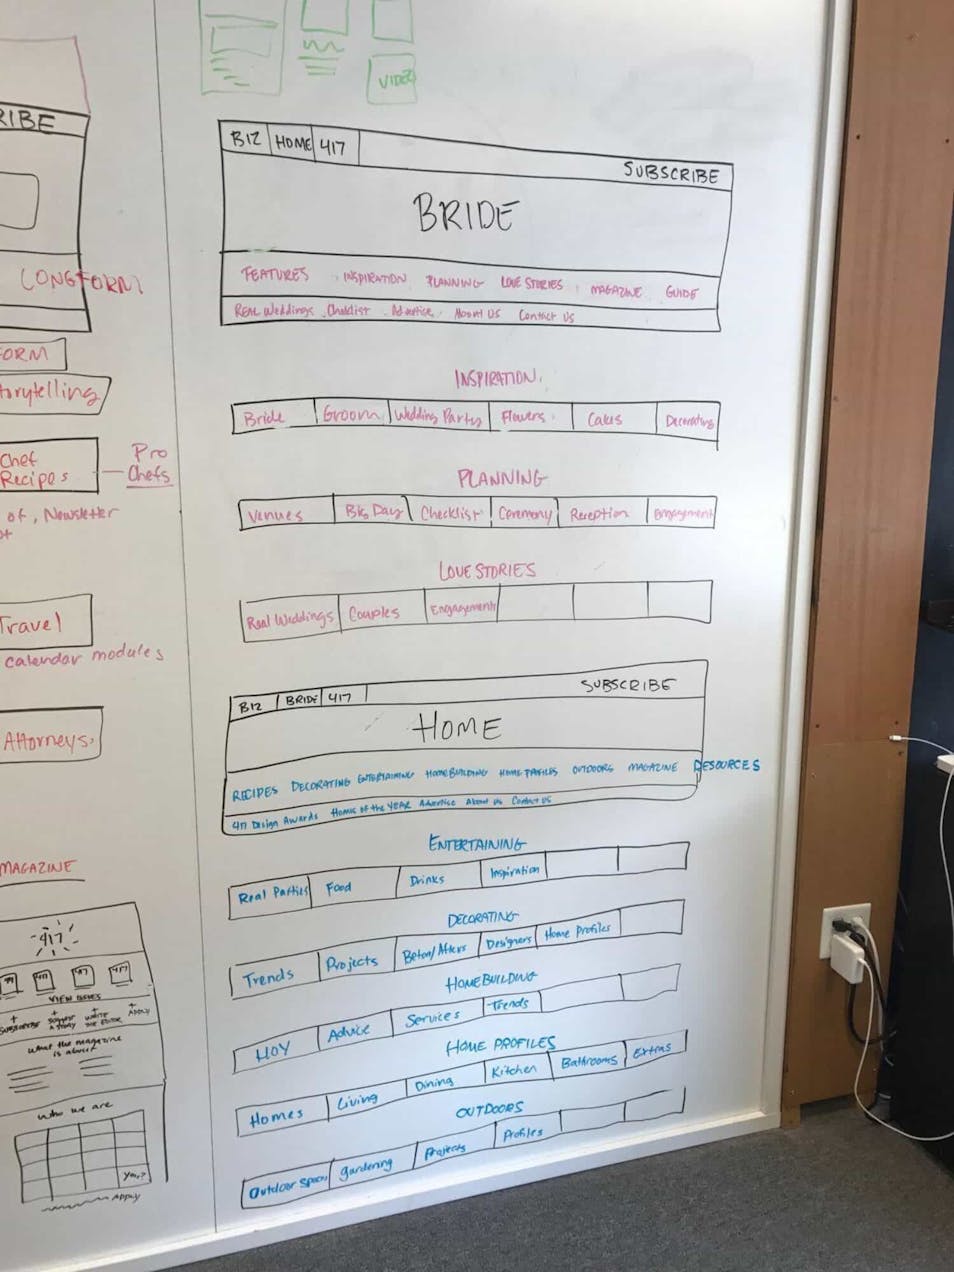 VIDEO
RIBE
LONGFORM
FORM
torytelling
Chef
Recipes
Pro
Chefs
of, Newsletter
Travel
calendar modules
Attorneys.
MAGAZINE
417
417
417
417
VIEW ISSUES
+ + + +
SUBSCRIBE SUGGEST A STORY WRITE THE EDITOR APPLY
What the magazine
is about
Who we are
You?
APPLY
BIZ HOME 417
SUBSCRIBE
BRIDE
FEATURES INSPIRATION PLANNING LOVE STORIES MAGAZINE GUIDE
Real Weddings Checklist Advertise About US Contact Us
INSPIRATION
Bride Groom Wedding Party Flowers Cakes Decorating
PLANNING
Venues Big Day Checklist Ceremony Reception Engagement
LOVE STORIES
Real Weddings Couples Engagements
BIZ BRIDE 417 SUBSCRIBE
HOME
RECIPES DECORATING ENTERTAINING HOMEBUILDING HOME PROFILES OUTDOORS MAGAZINE RESOURCES
417 Design Awards Homes of the YEAR Advertise About Us Contact US
ENTERTAINING
Real Parties Food Drinks Inspiration
DECORATING
Trends Projects Before/Afters Designers Home Profiles
HOMEBUILDING
HOY Advice Services Trends
HOME PROFILES
Homes Living Dining Kitchen Bathrooms Extras
OUTDOORS
Outdoor Spaces gardening Projects Profiles